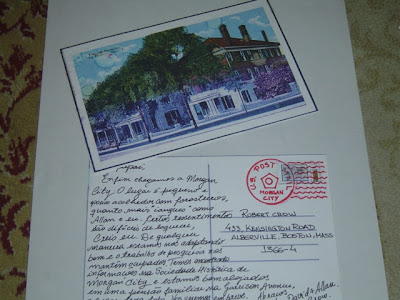 Papai,
Enfim chegamos a Morgan
City. O lugar é pequeno e
pouco acolhedor com forasteiros,
quanto mais "ianques" como
Allan e eu. Certos ressentimentos
são difíceis de esquecer,
Creio eu. De qualquer
maneira estamos nos adaptando
bem e o trabalho de pesquisa nos
mantém ocupados. Temos
informações na Sociedade Histórica de
Morgan City e estamos
em uma pensão familiar na Avenue,
Abraços
Allan
U.S. POST
MORGAN
CITY
ROBERT CROW
433, KENSINGTON ROAD
ALBERVILLE, BOSTON, MASS
1366-4